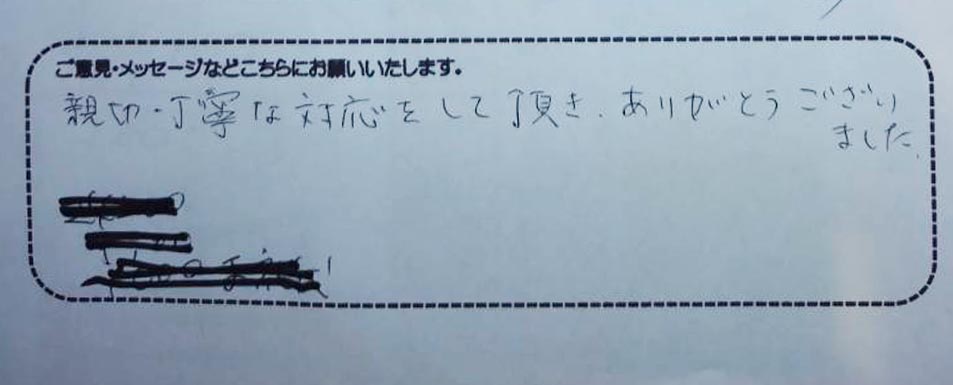 ご意見・メッセージなどこちらにお願いいたします。
親切・丁寧な対応をして頂き、ありがとうござい
ました。